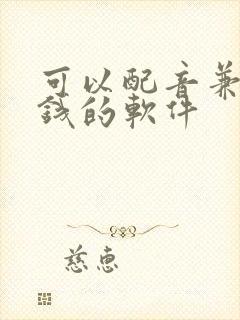 可以配音兼
錢的軟件
慈惠